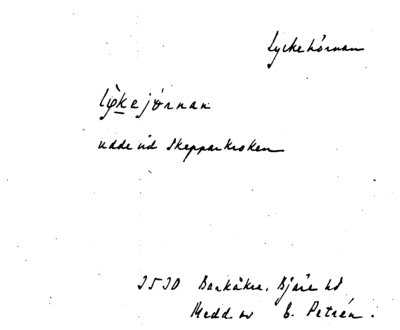 Lyckehörnan
lỳkejørnan
udde vid Skepparkroken
Barkåkra, Bjäre hd
Medd av E. Petrén.